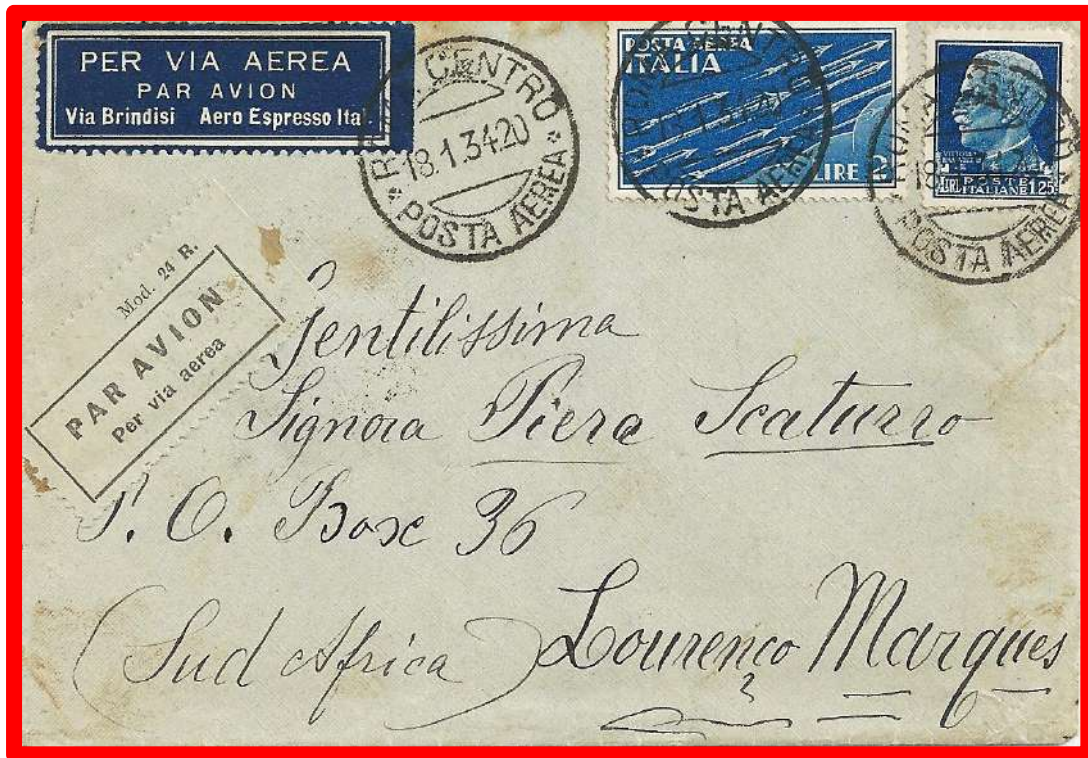 PER VIA AEREA
PAR AVION
Via Brindisi Aero Espresso Ital.
ROMA CENTRO
18.1.34.20
POSTA AEREA
POSTA AEREA
ITALIA
LIRE 2
POSTE
ITALIANE 1.25
ROMA
18
POSTA AEREA
Mod. 24 R.
PAR AVION
Per via aerea
Gentilissima
Signora Piera Scaturro
P. O. Box 36
(Sud Africa) Lourenço Marques